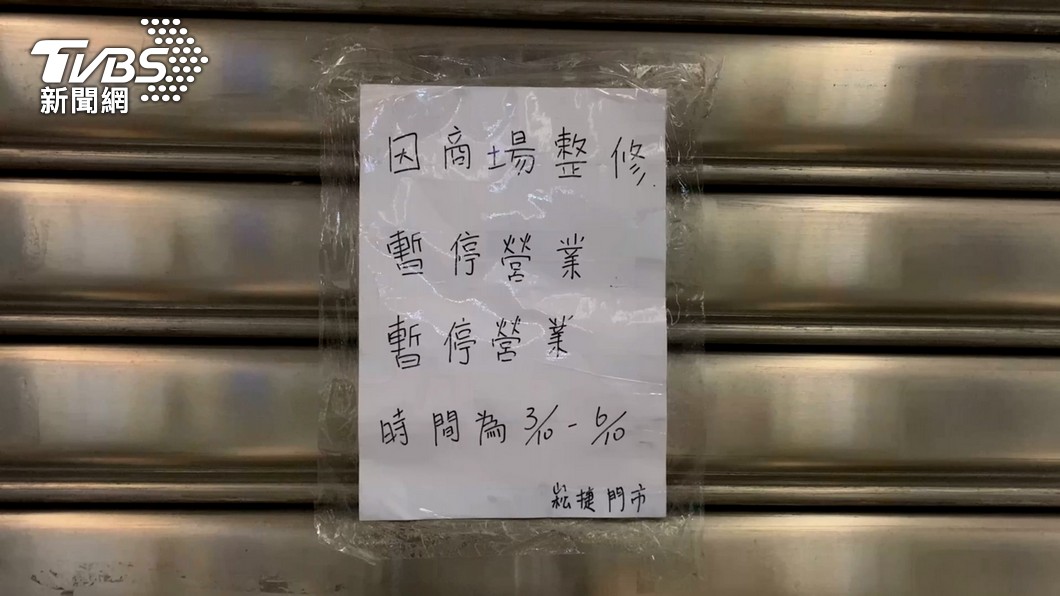 TVBS
新聞網
因商場整修
暫停營業
暫停營業
時間為3/10-6/10
崧捷門市